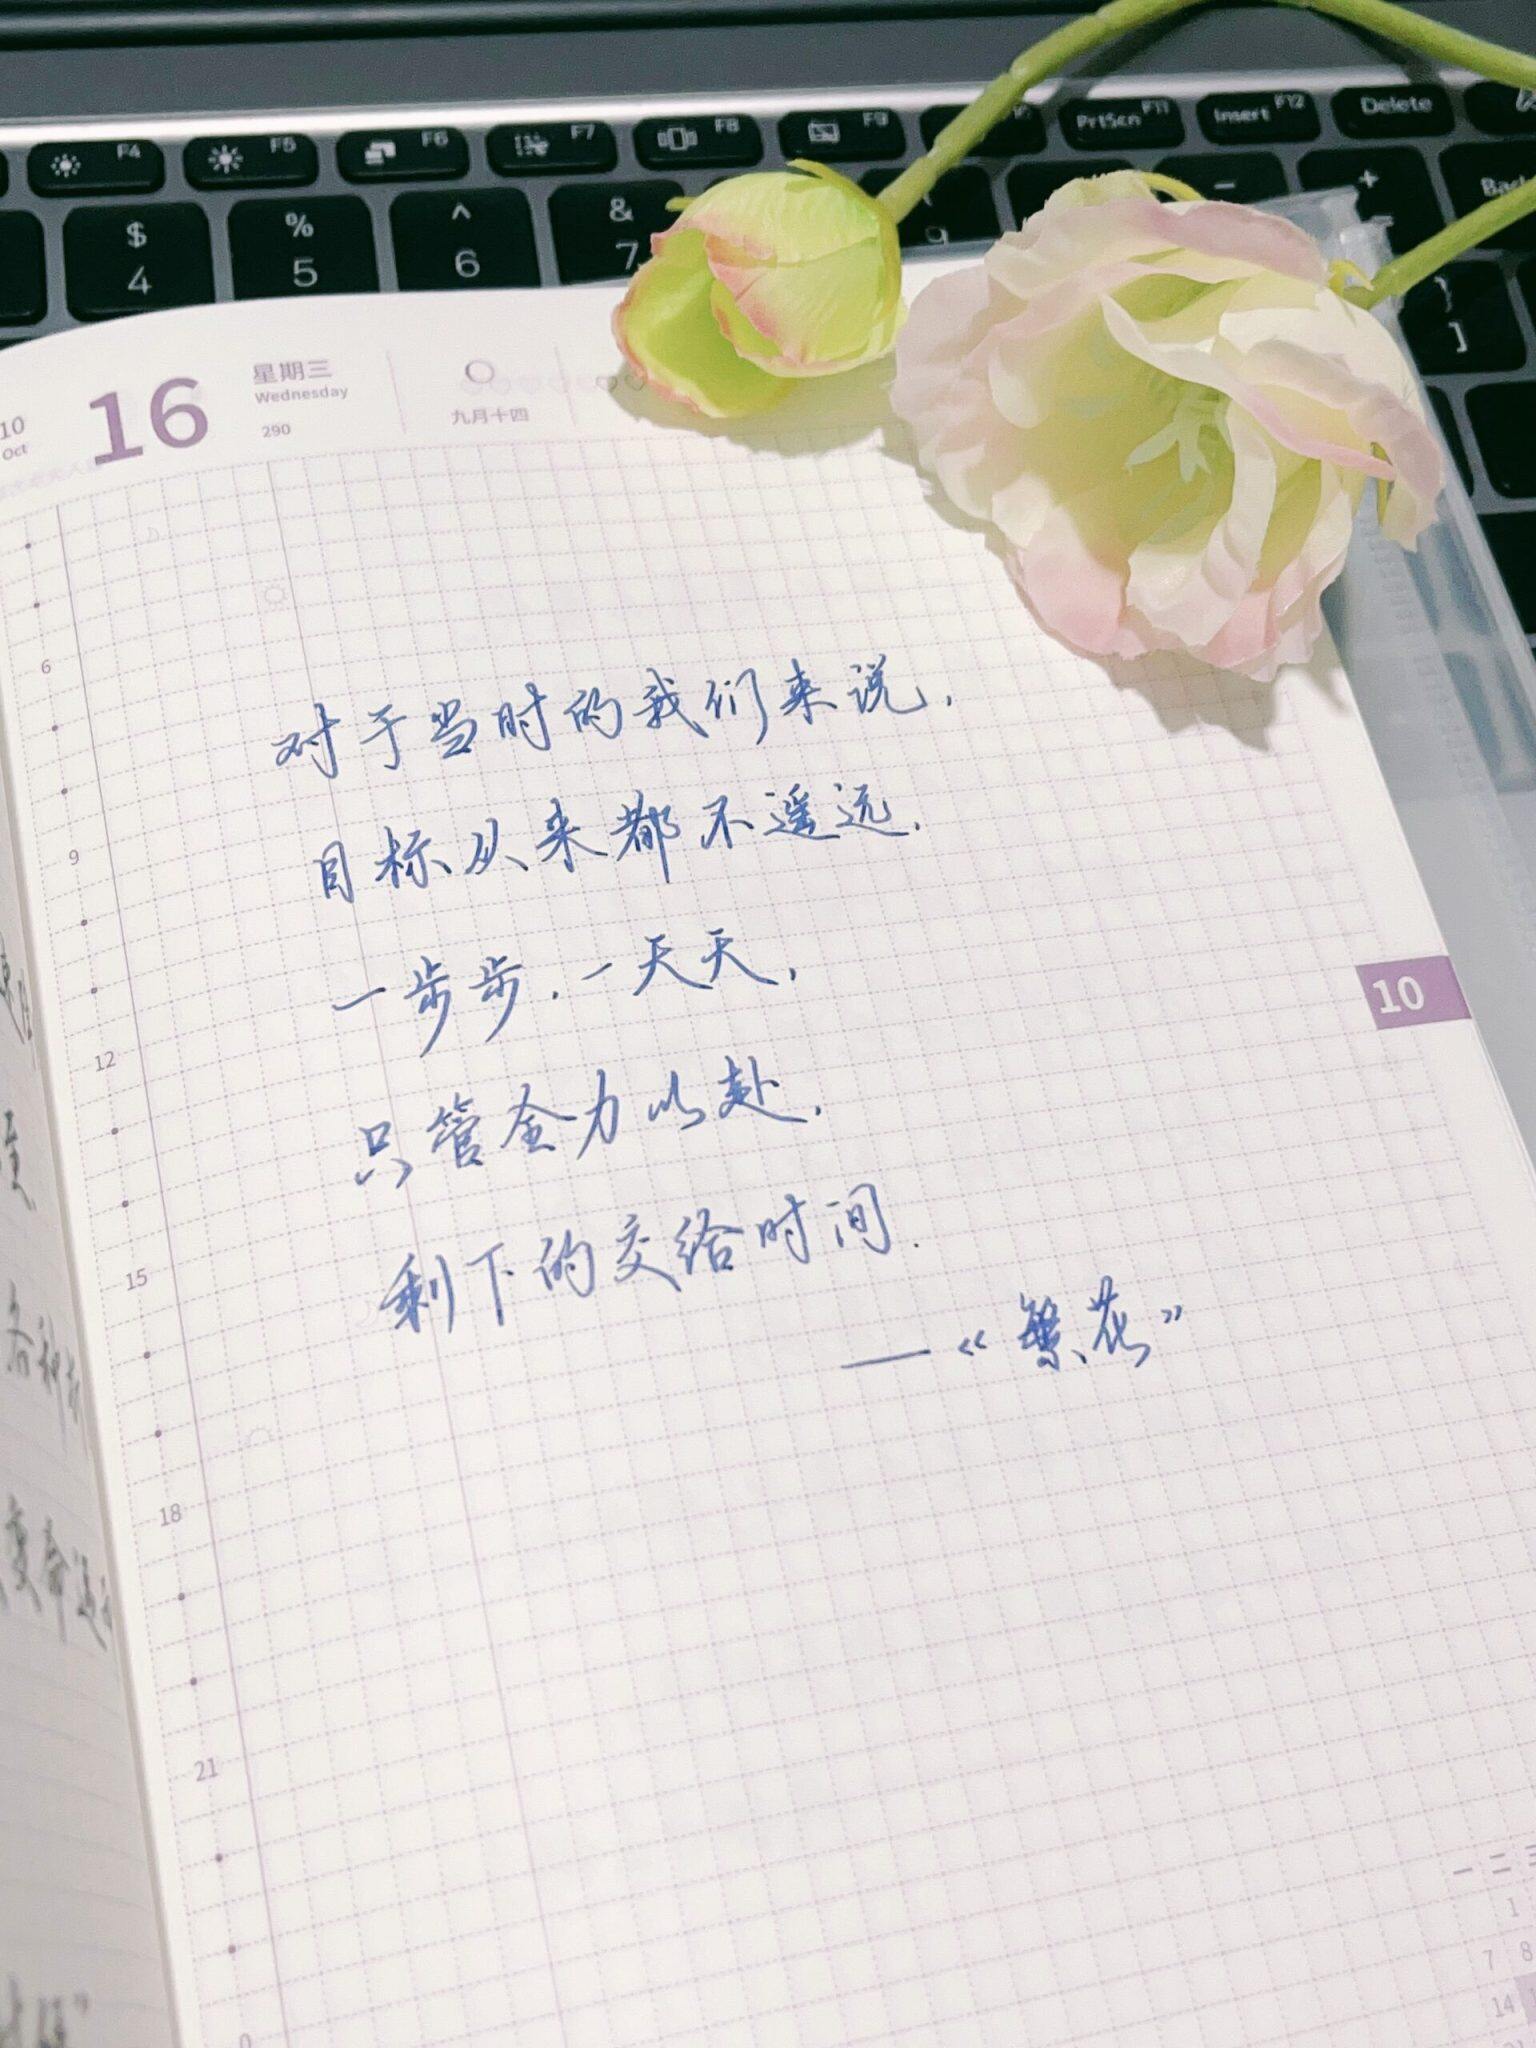 F4 F5 F6 F7 F8 F9 PrtScn F11 Insert F12 Delete
$ % ^ & - +
4 5 6 7 9 =
} ]
10 Oct 16 星期三 Wednesday 290 九月十四
对于当时的我们来说,
目标从来都不遥远.
一步步.一天天,
只管全力以赴.
剩下的交给时间.
——《繁花》
6
9
12
15
18
21
0
10
一 二 三
1
7 8
14